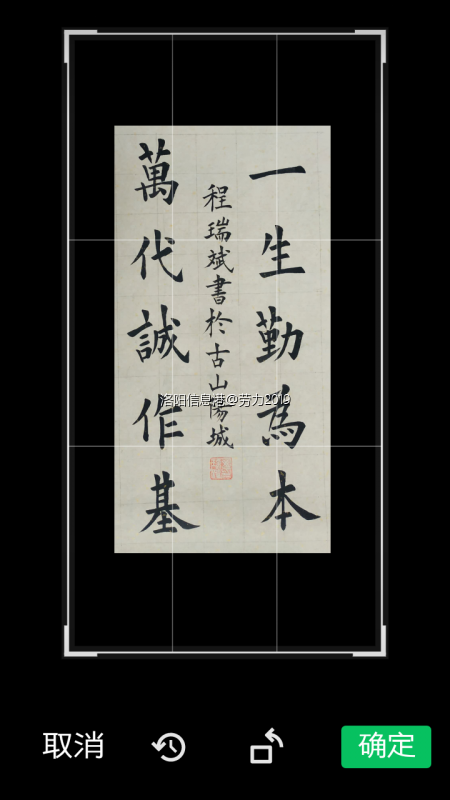 一生勤為本
程瑞斌書於古山陽城
萬代誠作基
洛阳信息港@劳力2019
取消
确定